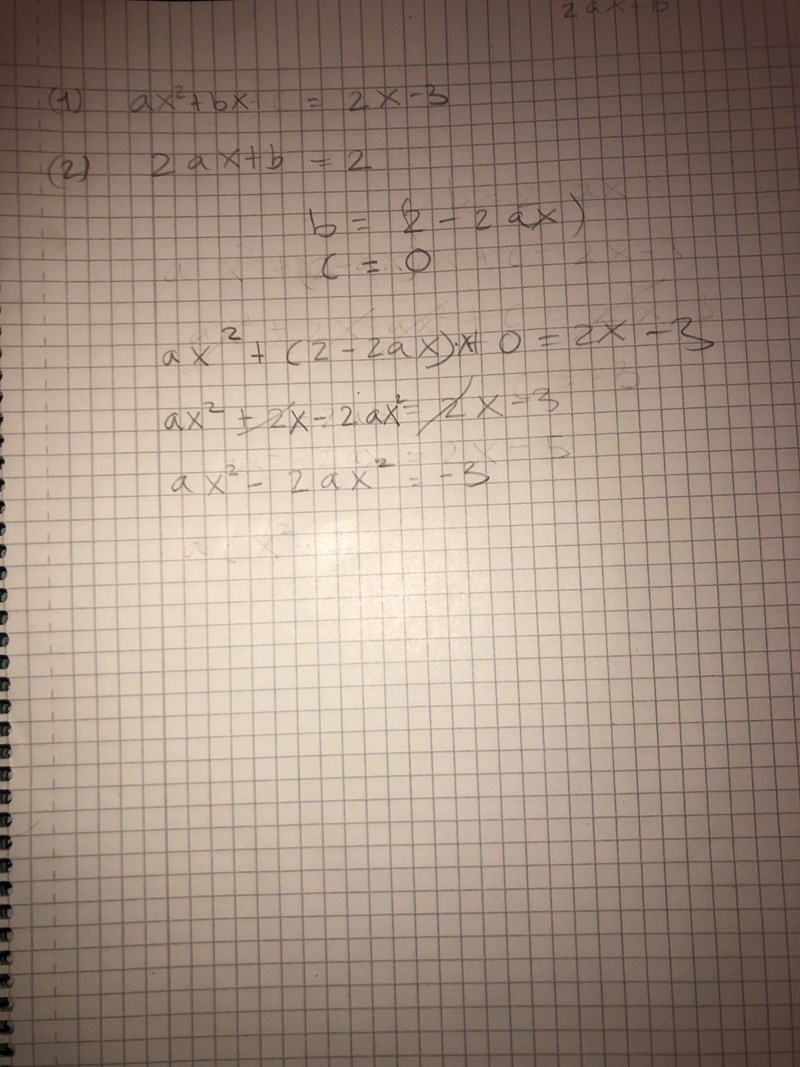 2ax+b
(1) ax²+bx = 2x-3
(2) 2ax+b = 2
b = 2 - 2ax)
c = 0
ax² + (2-2ax)·x+ 0 = 2x-3
ax² + 2x - 2ax² = 2x-3
ax² - 2ax² = -3